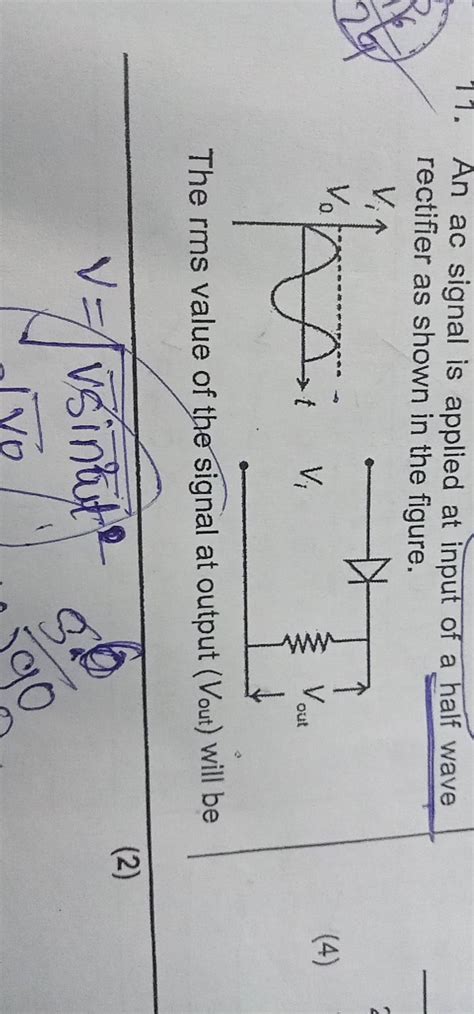 11. An ac signal is applied at input of a half wave
rectifier as shown in the figure.
Vi
V0
t
Vi
Vout
The rms value of the signal at output (Vout) will be
(4)
(2)
V = √Vsinωt²
√V0
90